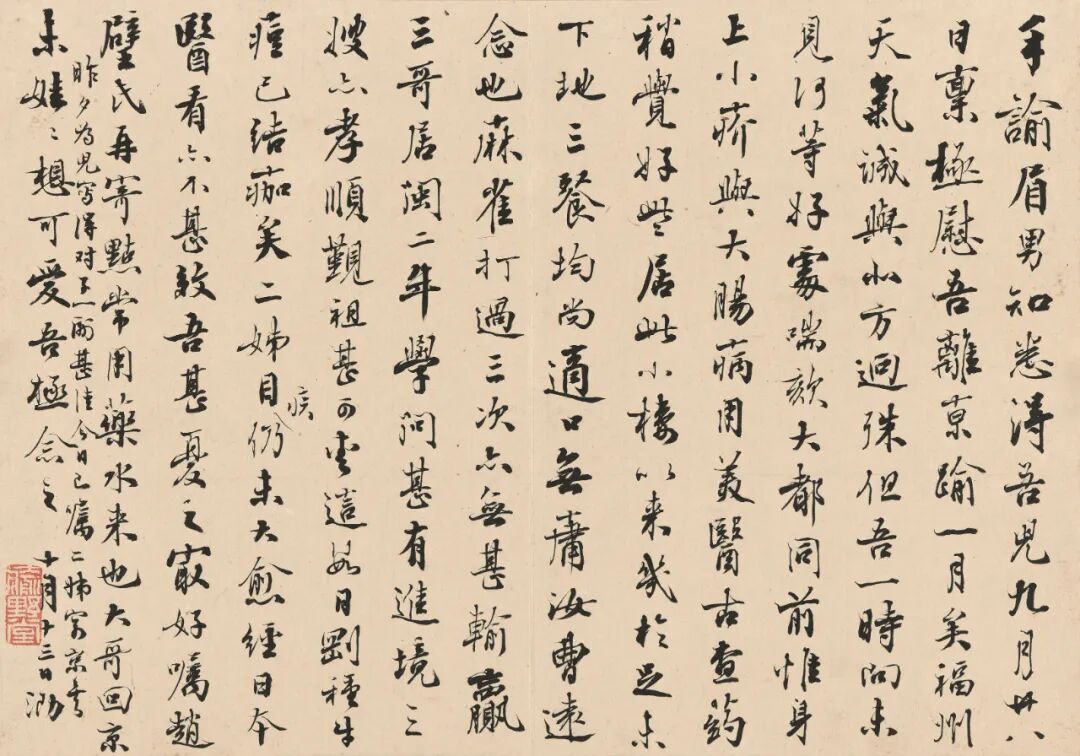 手諭眉男知悉得吾兒九月廿八
日稟極慰吾離京踰一月矣福州
天氣誠與北方迥殊但吾一時尚未
見何等好處喘欬大都同前惟身
上小疥與大腸病用美醫古查葯
稍覺好些居此小樓以來幾於足未
下地三餐均尚適口無庸汝曹遠
念也麻雀打過三次亦無甚輸贏
三哥居閩二年學問甚有進境三
嫂亦孝順觀祖甚可愛這數日劉種牛
痘已結痂矣二姊目疾仍未大愈經日本
醫看亦不甚效吾甚憂之最好囑趙
璧氏再寄點常用藥水来也大哥回京
昨夕為兒寫得对子兩甚佳今日已屬二姊寄京矣
未娃娃想可愛吾極念之 十月十三日泐